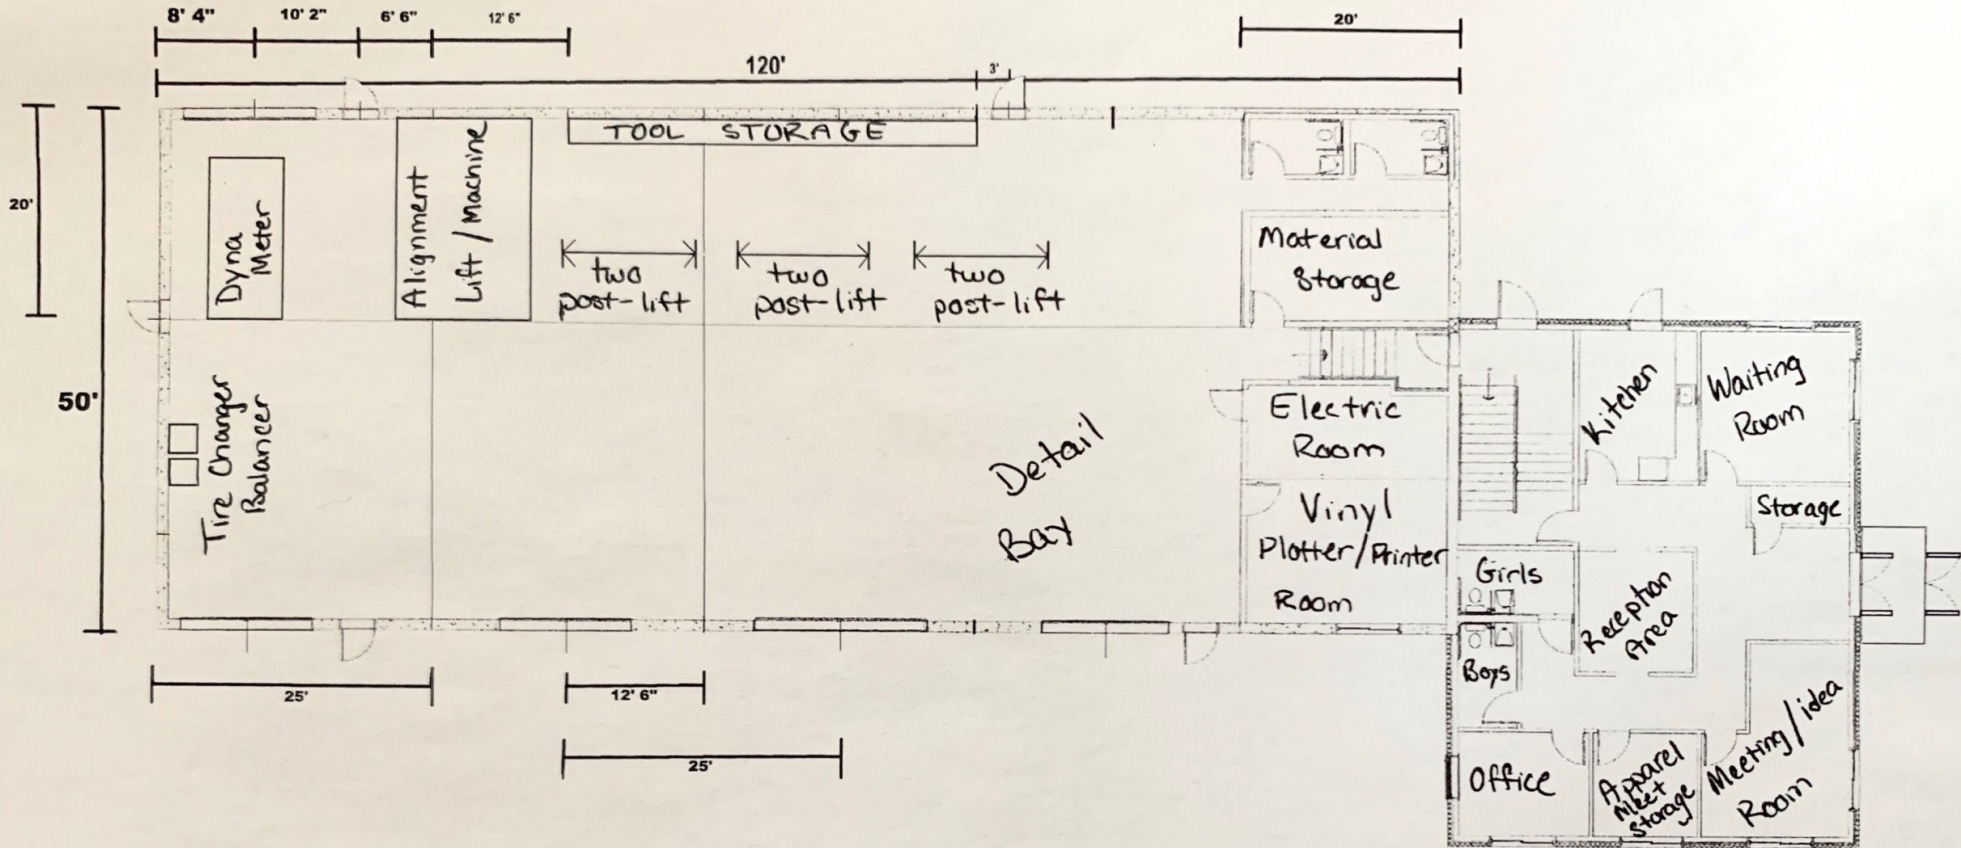 8' 4"
10' 2"
6' 6"
12' 6"
20'
120'
3'
20'
50'
TOOL STORAGE
Dyna
Meter
Alignment
Lift / Machine
two
post-lift
two
post-lift
two
post-lift
Material
Storage
Tire Changer
Balancer
Detail
Bay
Electric
Room
Vinyl
Plotter/Printer
Room
Kitchen
Waiting
Room
Storage
Girls
Reception
Area
Boys
Office
Apparel
Meet
Storage
Meeting/idea
Room
25'
12' 6"
25'